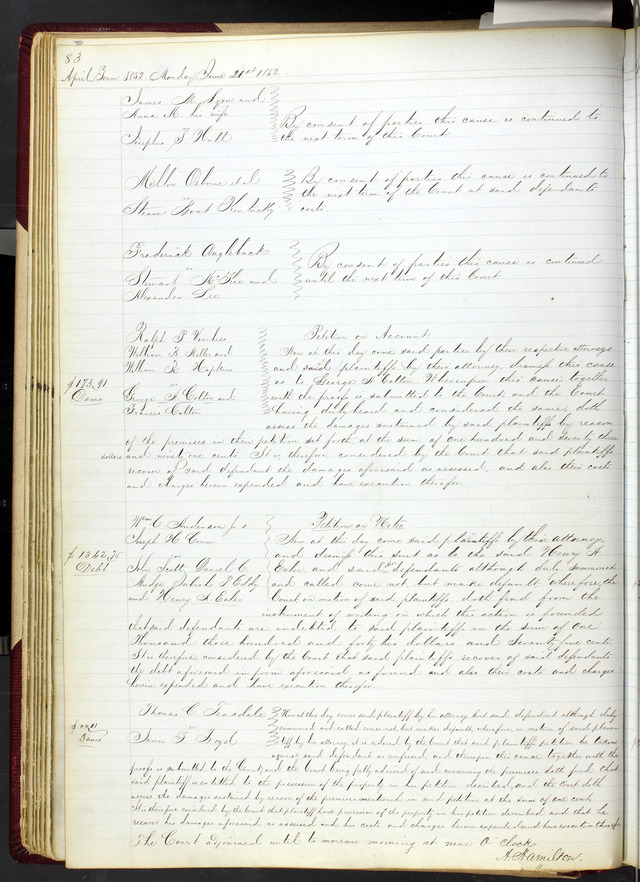 83
April Term 1852 Monday June 21st 1852
James M Lyon and
Anna M. his wife
vs
Josephus P Hutt
By consent of parties this cause is continued to
the next term of this Court
Mahlon Osborne et al
vs
Steam Boat Kentucky
By consent of parties this cause is continued to
the next term of the Court at said defendants
costs.
Frederick Angleback
vs
Stewart McKee and
Alexander Lee
By consent of parties this cause is continued
until the next term of this Court
$173.91
Dams
Ralph P Voorhies
William R Miller and
William R Hopkins
vs
George S Colton and
Francis Colton
Petition on Account
Now at this day come said parties by their respective attorneys
and said plaintiffs by their attorney, dismiss this cause
as to George S Colton. Whereupon this cause together
with the proofs is submitted to the Court, and the Court
having duly heard and considered the same, doth
assess the damages sustained by said plaintiffs by reason
of the premises in their petition set forth at the sum of one hundred and seventy three
dollars and ninety one cents It is therefore considered by the Court that said plaintiffs
recover of said defendant the damages aforesaid as assessed, and also their costs
and charges herein expended and have execution therefor
$1342.75
Debt
Wm C Anderson jr &
Joseph H Conn
vs
Jno Scott, Daniel C
Mudge, Jabish P Eddy
and Henry A Eake
Petition on Note
Now at the day come said plaintiffs by their attorney,
and dismiss this suit as to the said Henry A
Eake and said defendants although duly summoned
and called come not, but make default wherefore, the
Court on motion of said plaintiffs, doth find from the
instrument of writing on which this action is founded
that said defendant are indebted to said plaintiffs in the sum of One
Thousand three hundred and forty two dollars and Seventy five cents
It is therefore considered by the Court that said plaintiffs recover of said defendants
the debt aforesaid in form aforesaid as found and also their costs and charges
herein expended and have execution therefor
Dams
Thomas C Teasdale
vs
James F Boyd
Now at this day comes said plaintiff by his attorney but said defendant although duly
summoned and called comes not but makes default, wherefore, on motion of said plain-
tiff by his attorney, it is ordered by the Court that said plaintiffs petition be taken
against said defendant as confessed and thereupon this cause together with the
proofs is submitted to the Court, and the Court being fully advised of and concerning the premises doth find that
said plaintiff is entitled to the possession of the property in his petition described, and the Court doth
assess the damages sustained by reason of the premises mentioned in said petition at the sum of one cent.
It is therefore considered by the Court that plaintiff have possession of the property in his petition described and that he
recover his damages aforesaid as assessed and his costs and charges herein expended and have execution therefor
The Court adjourned until to morrow morning at nine O Clock
A. Hamilton.